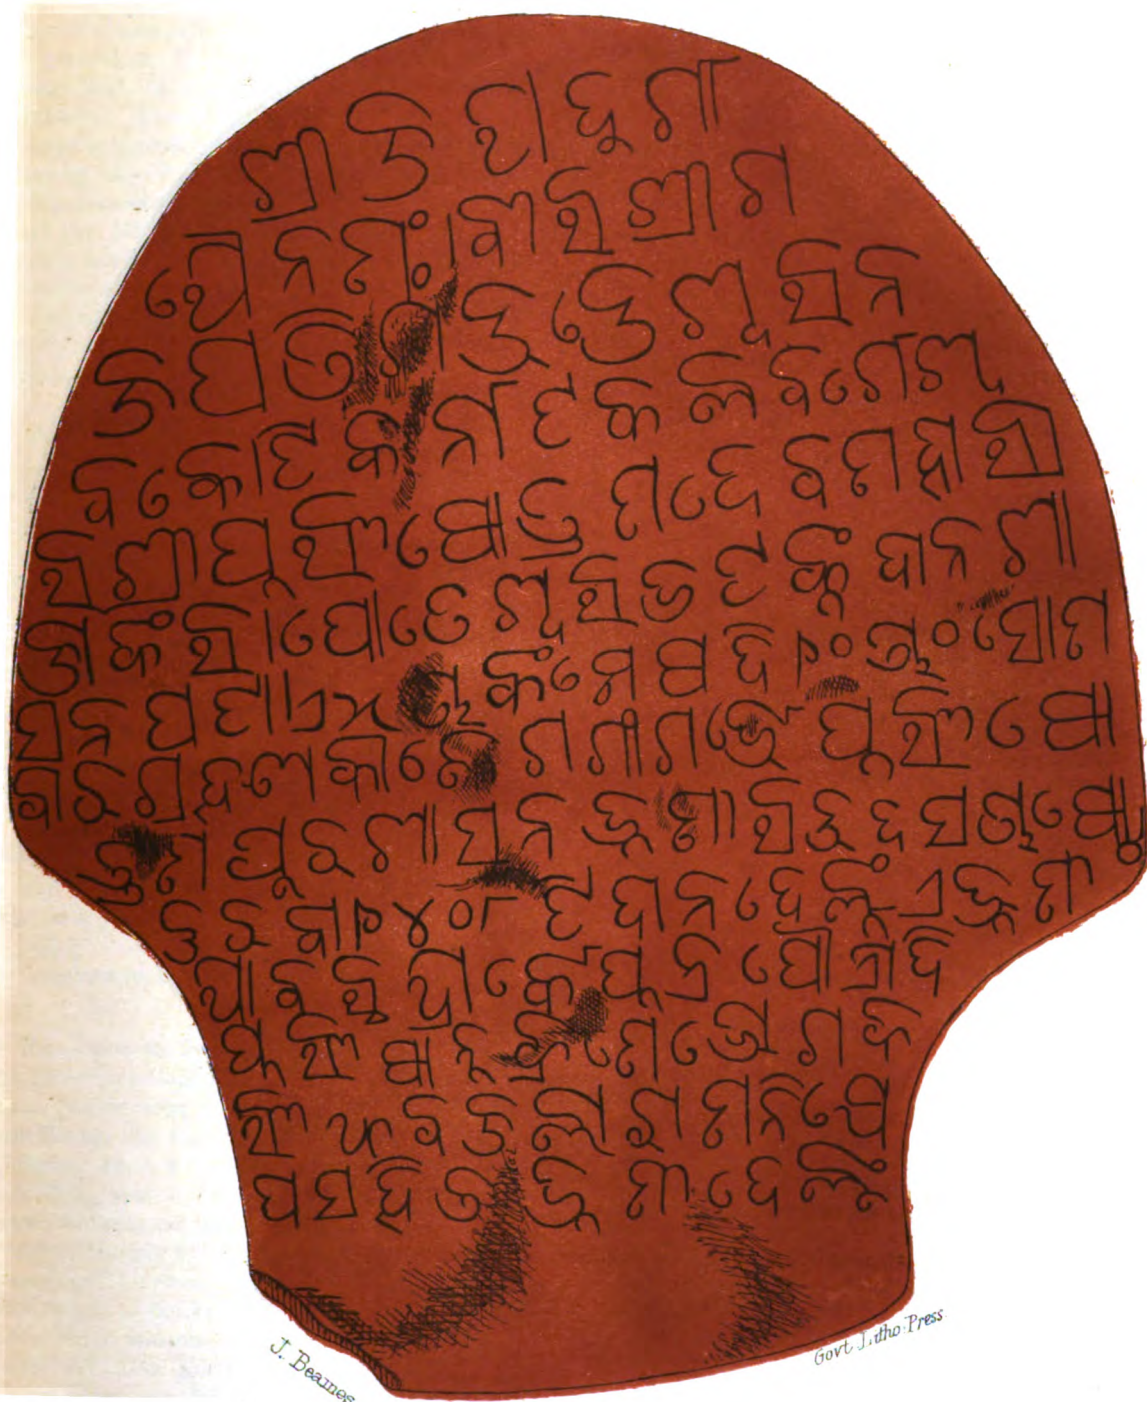 ଶ୍ରୀ ଜୟ ଦୁର୍ଗା
ଯୈ ନମଃ । ବୀର ଶ୍ରୀ ଗ
ଜପତି ଗଉଡେଶ୍ୱର ନ
ବକୋଟି କର୍ନାଟ କଲବର୍ଗେଶ୍ୱ
ର ଶ୍ରୀ ପୁରୁଷୋତ୍ତମ ଦେବ ମହାରା
ଜାଙ୍କର । ପୋତେଶ୍ୱର ଭଟଙ୍କୁ ଦାନ ଶା
ସନ ପଟା । ଏ ୫ ଅଙ୍କ ମେଷ ଦି ୧୦ ଅଂ ସୋମ
ବାର ଗ୍ରହଣ କାଲେ ଗଙ୍ଗାଗର୍ଭେ ପୁରୁଷୋ
ତ୍ତମପୁର ଶାସନ ଭୂମି ଚଉଦସ ଅଷ୍ଟୋ
ତର ବା ୧୪୦୮ ଟି ଦାନ ଦେଲୁଁ ଏ ଭୂମି
ଯାବଚ୍ଚନ୍ଦ୍ରାର୍କେ ପୁତ୍ର ପୌତ୍ରାଦି
ପୁରୁଷାନୁକ୍ରମେ ଭୋଗ କ
ରୁଥିବ ଜଲାରାମ ନିକ୍ଷେ
ପ ସହିତ ଭୂମି ଦେଲୁଁ
J. Beames
Govt. Litho. Press.